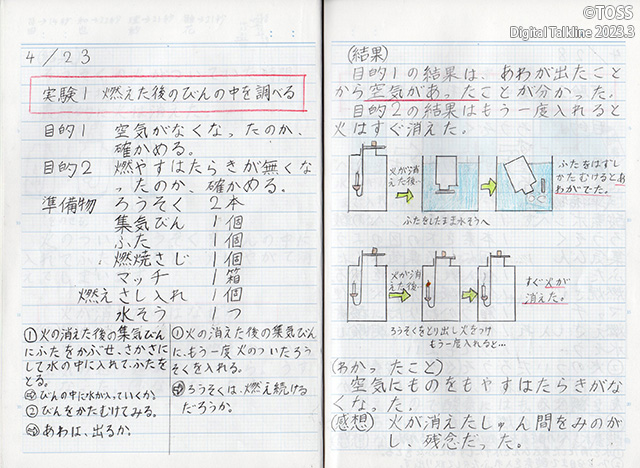 ©TOSS
Digital Talkline 2023.3
4/23
実験1 燃えた後のびんの中を調べる
目的1 空気がなくなったのか、
確かめる。
目的2 燃やすはたらきが無くな
ったのか、確かめる。
準備物 ろうそく 2本
集気びん 1個
ふた 1個
燃焼さじ 1個
マッチ 1箱
燃えさし入れ 1個
水そう 1つ
①火の消えた後の集気びん
にふたをかぶせ、さかさに
して水の中に入れて、ふたを
とる。
⇨びんの中に水が入っていくか。
②びんをかたむけてみる。
⇨あわは、出るか。
①火の消えた後の集気びん
に、もう一度火のついたろう
そくを入れる。
⇨ろうそくは、燃え続ける
だろうか。
(結果)
目的1の結果は、あわが出たこと
から空気があったことが分かった。
目的2の結果はもう一度入れると
火はすぐ消えた。
火が消
えた後…
ふたをはずし
かたむけるとあ
わがでた。
ふたをしたまま水そうへ
火が消
えた後…
すぐ火が
消えた。
ろうそくをとり出し火をつけ
もう一度入れると…
(わかったこと)
空気にものをもやすはたらきがな
くなった。
(感想) 火が消えたしゅん間をみのが
し、残念だった。